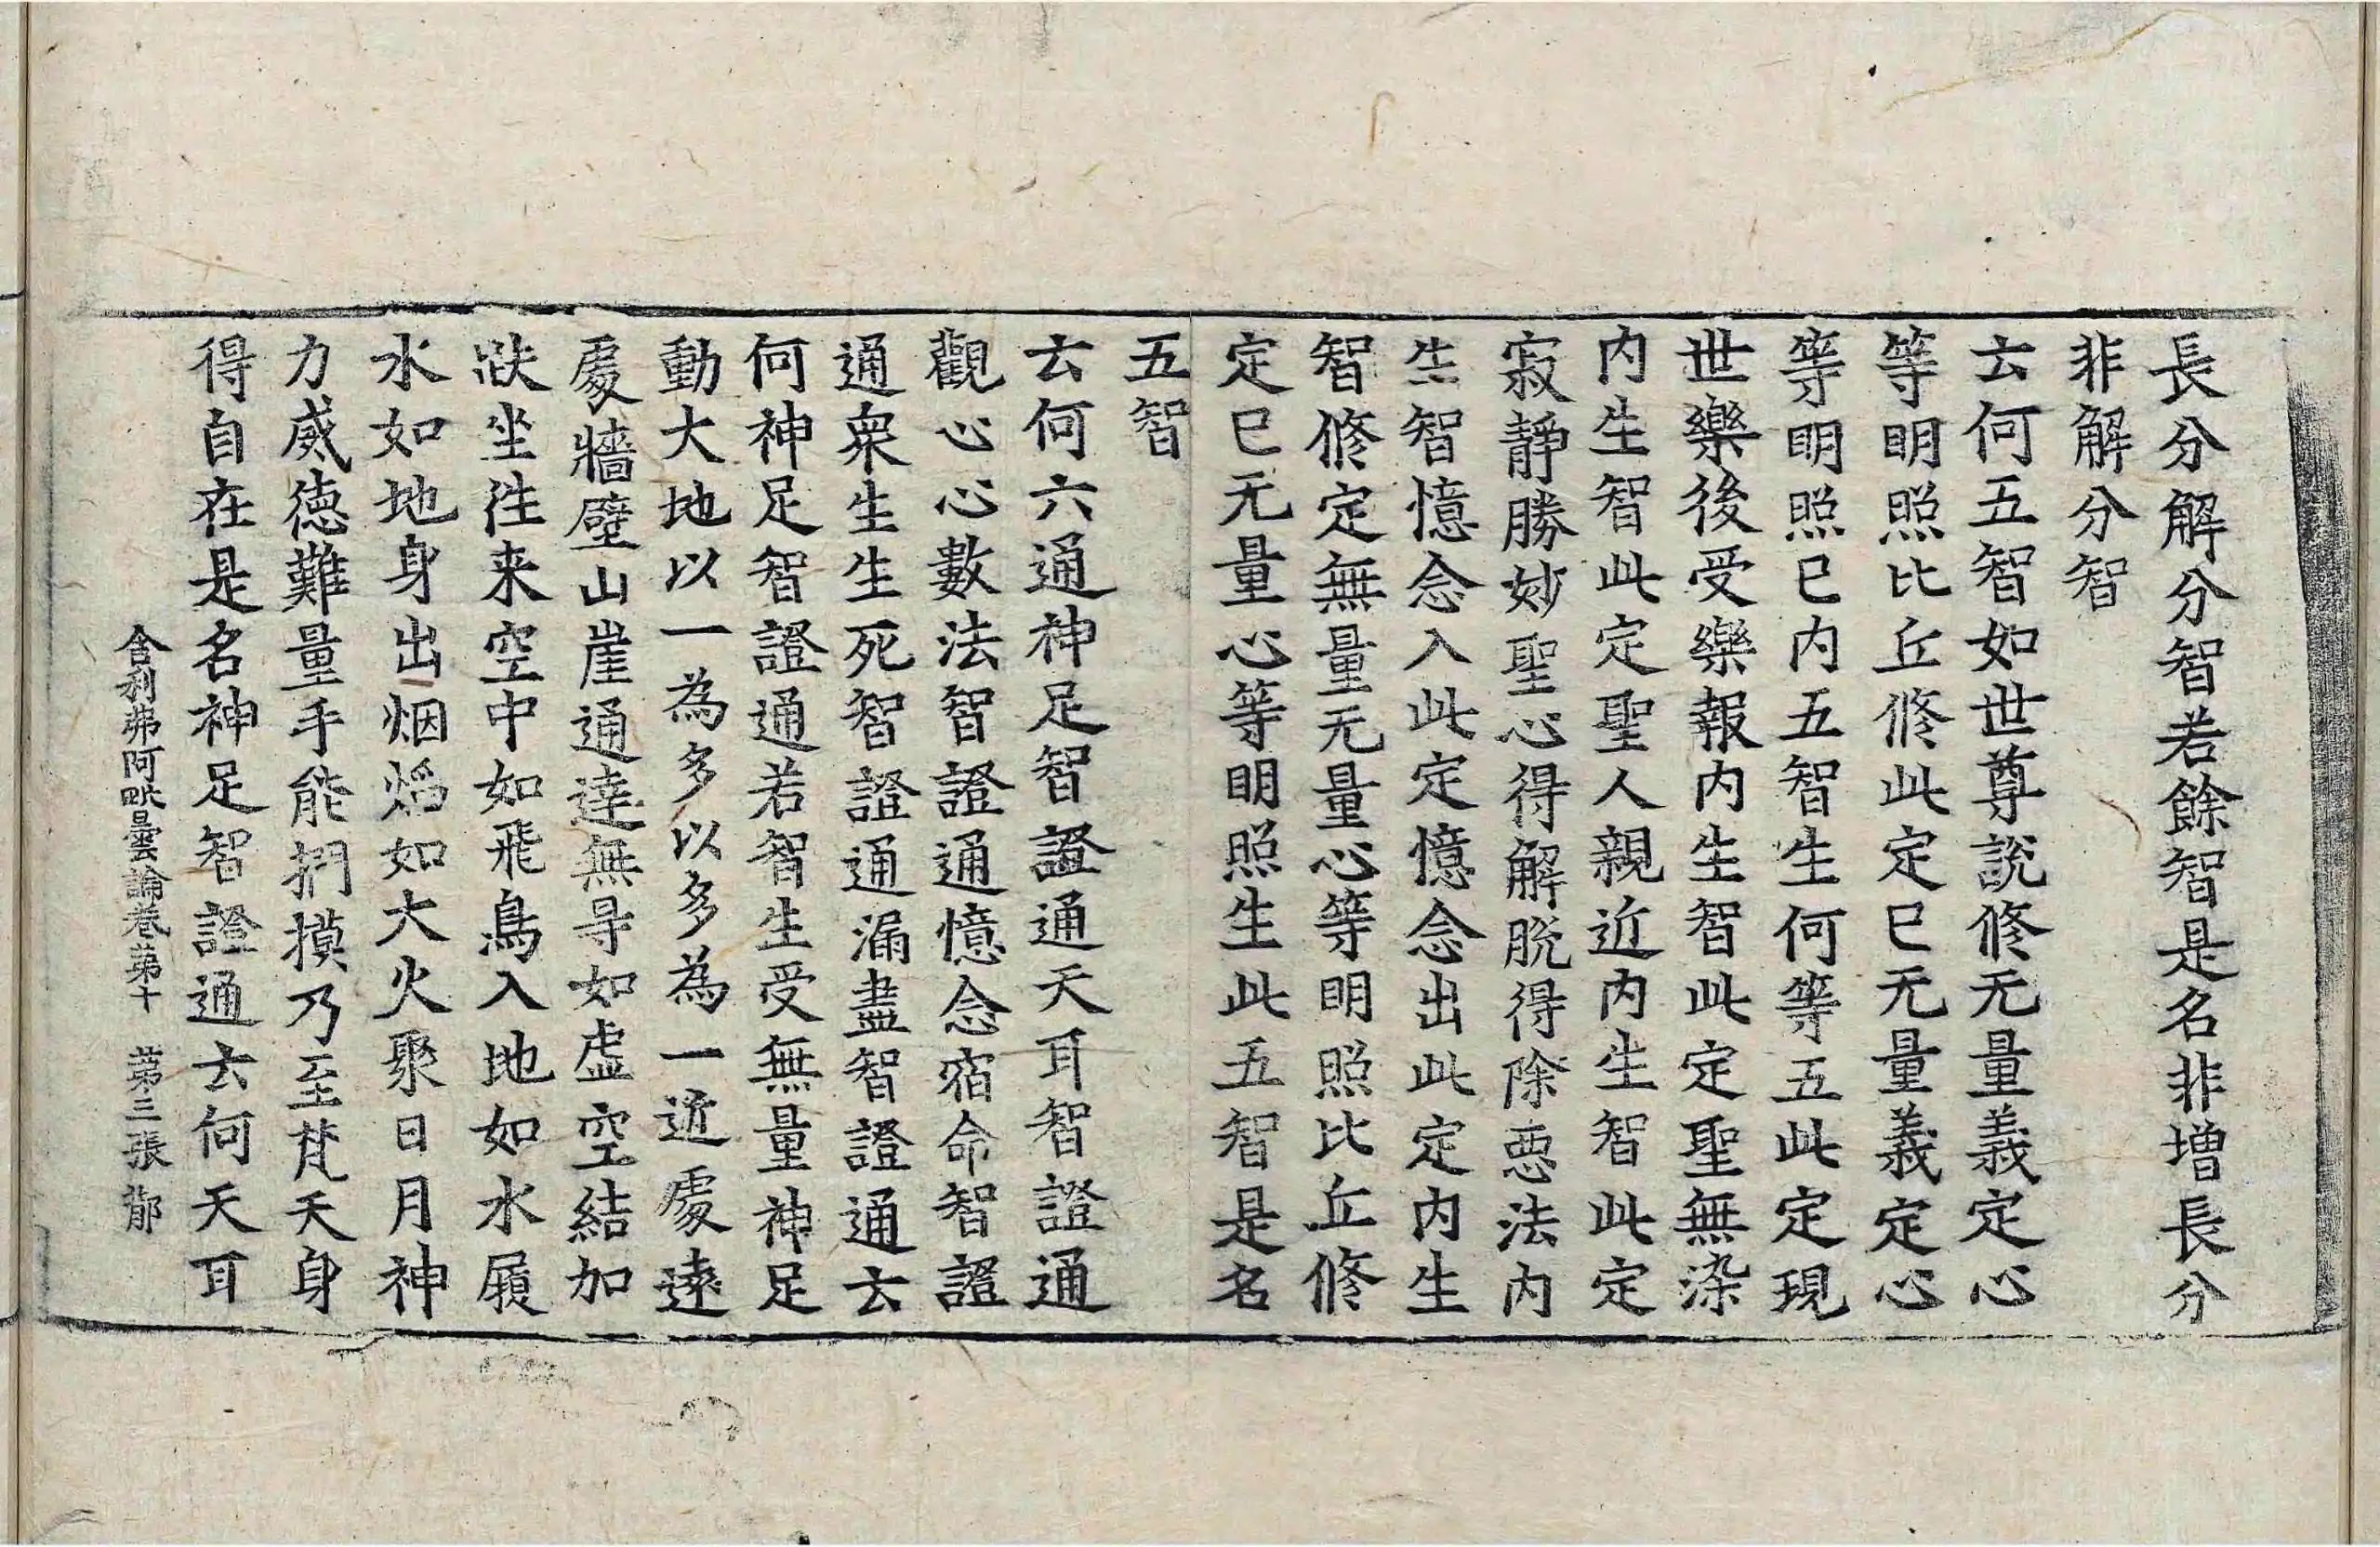 長分解分智若餘智是名非增長分
非解分智
云何五智如世尊說修无量義定心
等明照比丘修此定已无量義定心
等明照已内五智生何等五此定現
世樂後受樂報内生智此定聖無染
内生智此定聖人親近内生智此定
寂靜勝妙聖心得解脫得除惡法内
生智憶念入此定憶念出此定内生
智修定無量无量心等明照比丘修
定已无量心等明照生此五智是名
五智
云何六通神足智證通天耳智證通
觀心心數法智證通憶念宿命智證
通衆生生死智證通漏盡智證通云
何神足智證通若智生受無量神足
動大地以一為多以多為一近處遠
處牆壁山崖通達無㝵如虛空結加
趺坐往来空中如飛鳥入地如水履
水如地身出烟焰如大火聚日月神
力威德難量手能捫摸乃至梵天身
得自在是名神足智證通云何天耳
舍利弗阿毗曇論卷苐十 苐三張